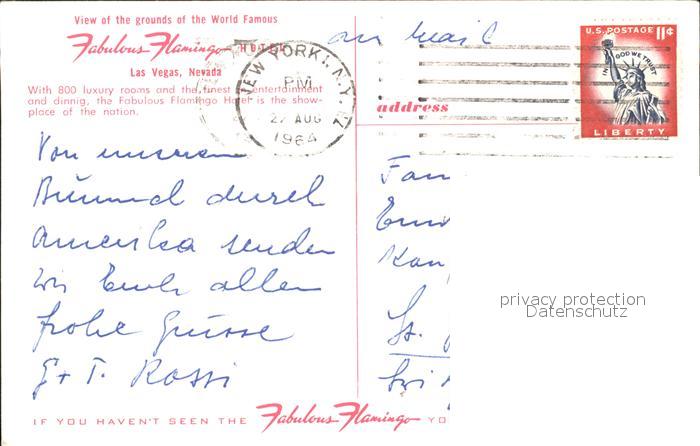 View of the grounds of the World Famous
Fabulous Flamingo HOTEL
Las Vegas, Nevada
With 800 luxury rooms and the finest entertainment
and dinnig, the Fabulous Flamingo Hotel is the show-
place of the nation.
air mail
NEW YORK, N.Y.
PM
27 AUG
1964
U.S. POSTAGE 11¢
IN GOD WE TRUST
LIBERTY
address
Von unserem
Bummel durch
Amerika senden
wir Euch allen
frohe Grüsse
G + T. Rossi
Fam
Kan
privacy protection
Datenschutz
IF YOU HAVEN'T SEEN THE Fabulous Flamingo YO